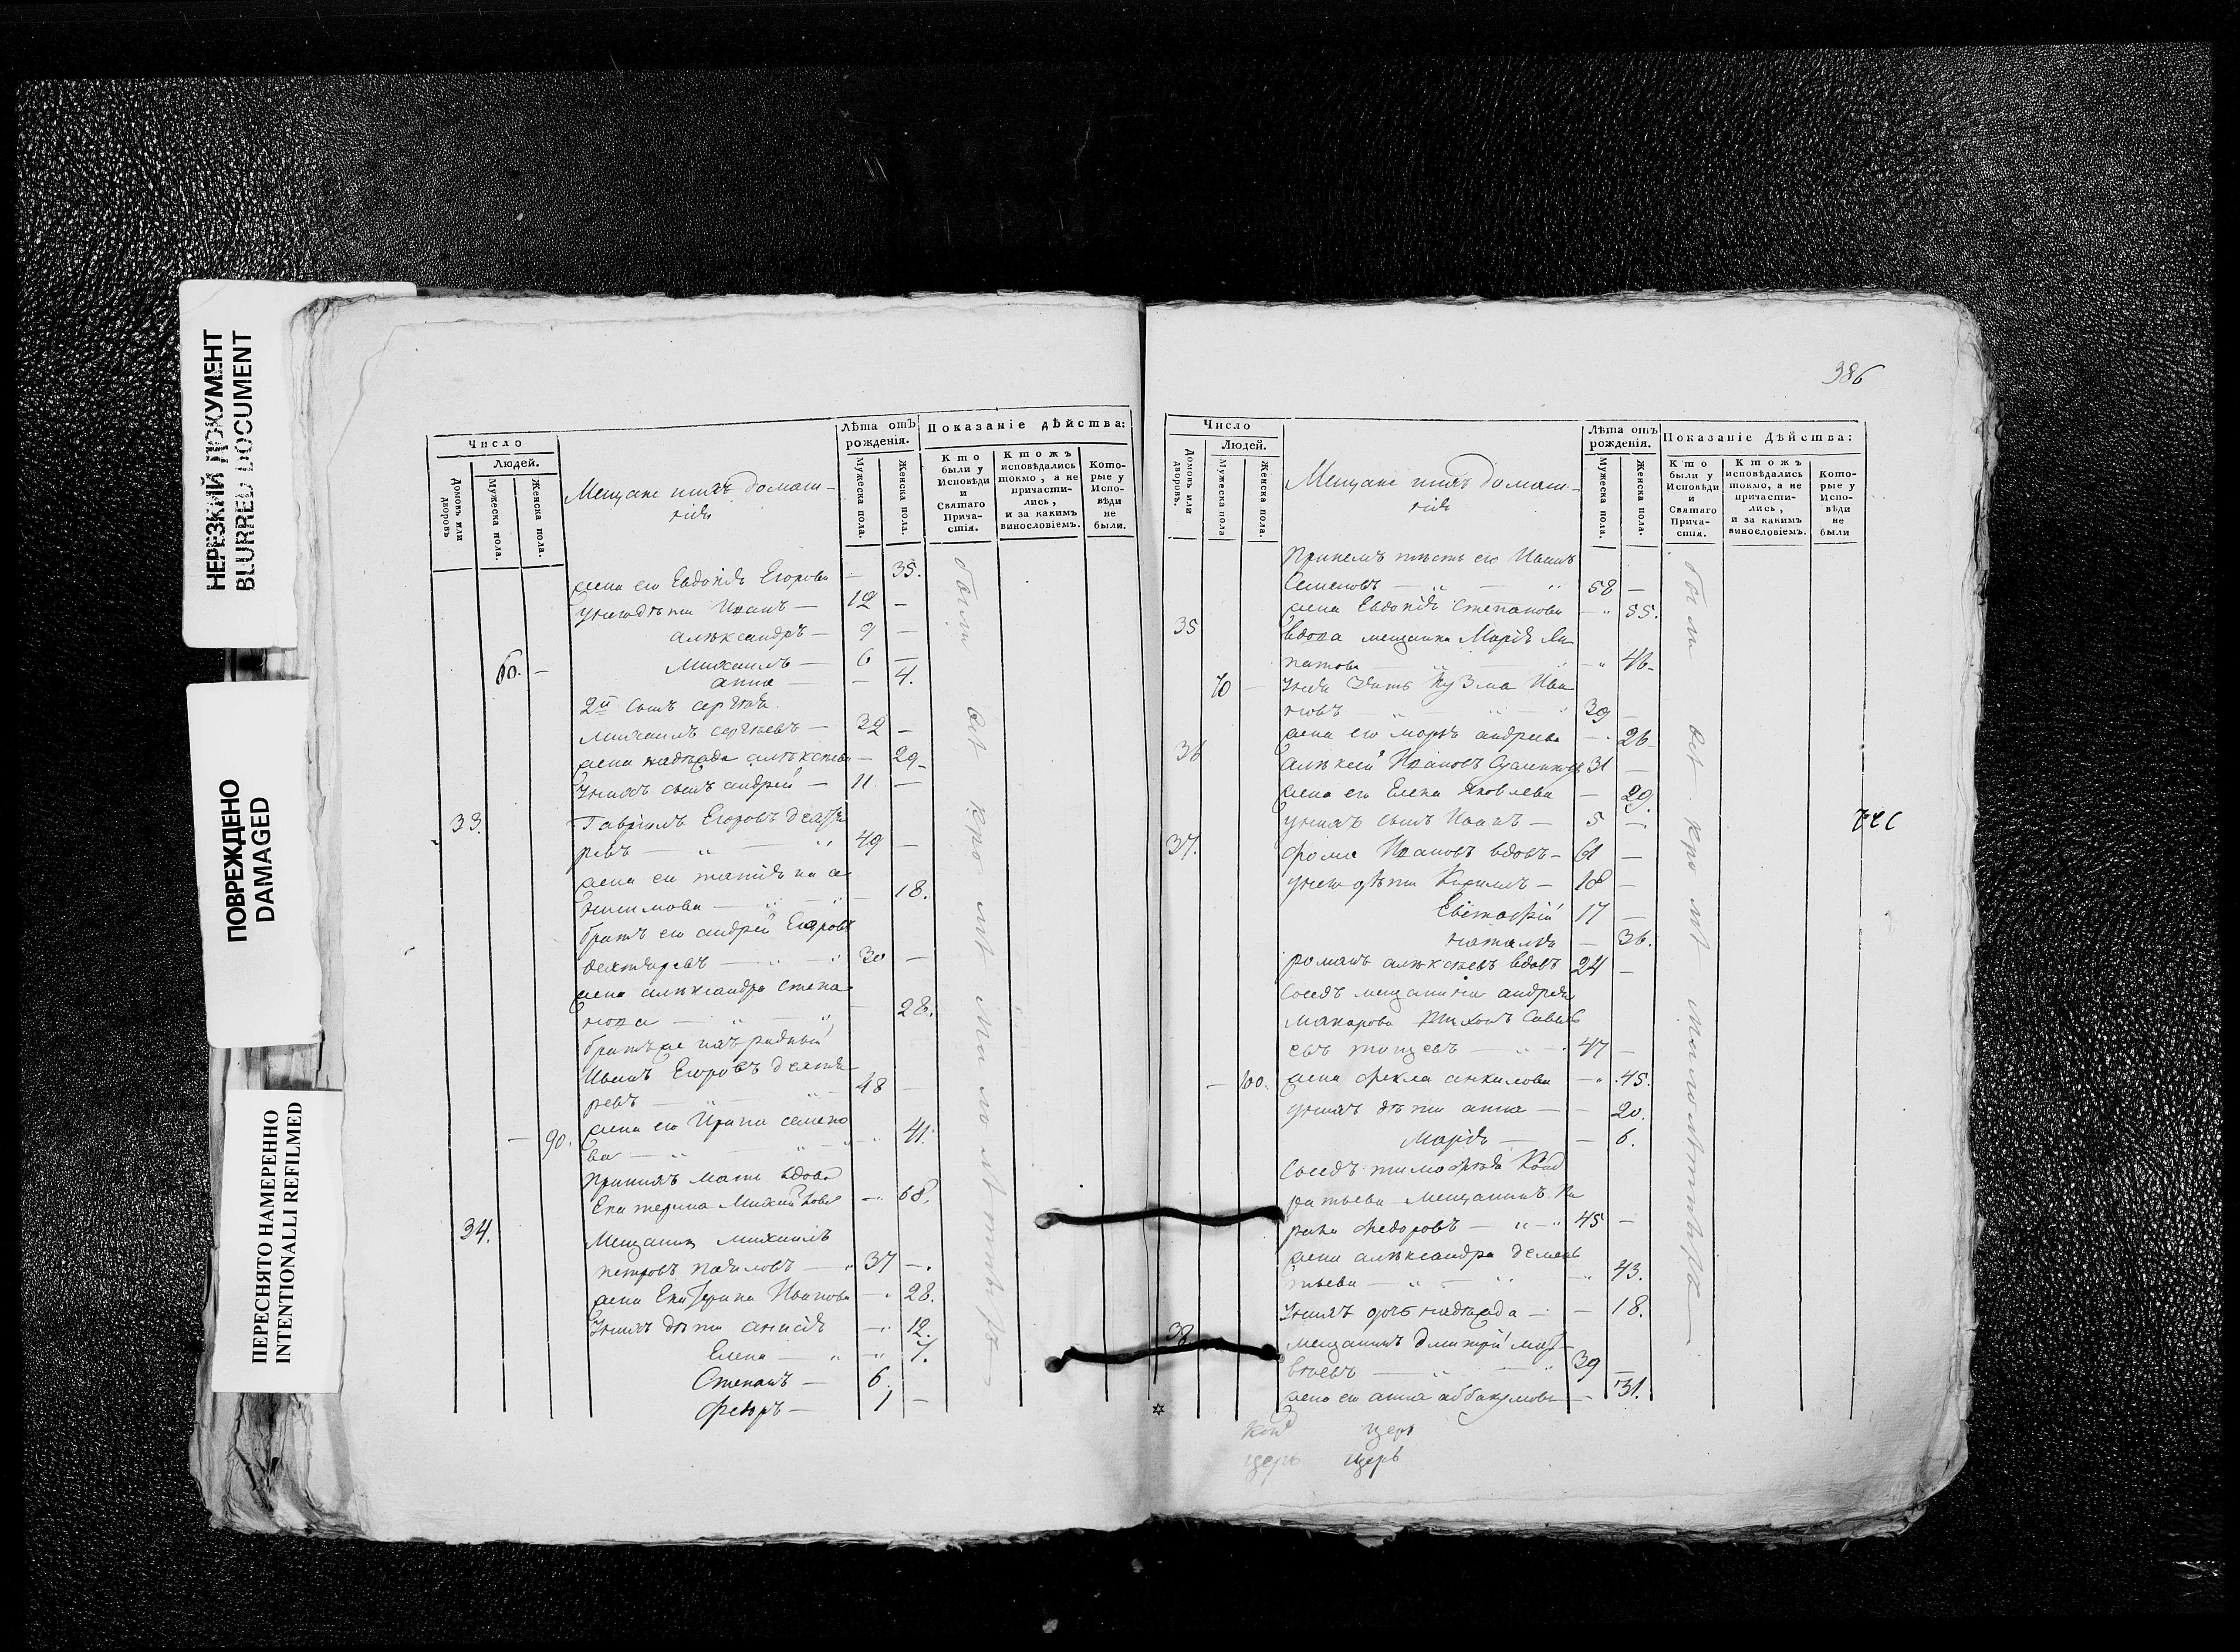 НЕРЕЗКИЙ ДОКУМЕНТ
BLURRED DOCUMENT
ПОВРЕЖДЕНО
DAMAGED
ПЕРЕСНЯТО НАМЕРЕННО
INTENTIONALLI REFILMED
Число
Людей.
Домовъ или дворовъ
Мужеска пола.
Женска пола.
Мещане ихъ домаш-
нія
Лѣта отъ рожденія.
Мужеска пола.
Женска пола.
Показаніе дѣйства:
Кто были у Исповѣди и Святаго Прича-стія.
Ктожъ исповѣдались токмо, а не причасти-лись, и за какимъ винословіемъ.
Кото-рые у Испо-вѣди не были.
жена его Евдокія Егорова — 35.
у нихъ дѣти Иванъ — 12 —
Александръ — 9 —
Михаилъ — 6 —
Анна — — 4.
2й сынъ Сергѣя
Михаилъ Сергѣевъ — 32 —
жена Надежда Алексѣева — 29
у нихъ сынъ Андрей — 11 —
33. Гавріилъ Егоровъ Дехтя
ревъ — " — " 49 —
жена его
18.
братъ его Андрей Егоровъ
Дехтяревъ — " — " 30 —
жена Александра Степа
нова — " — " 28.
братъ же ихъ родный
Иванъ Егоровъ Дехтя
ревъ — " — " 48 —
жена его Ирина Семено
— 90. ва — " — " 41.
При нихъ мать вдова
Екатерина Михайлова — 68.
34. Мещанинъ Михаилъ
Петровъ — 37 —
жена Екатерина Иванова — 28.
у нихъ дѣти Анисія — 12.
Елена — " — " 7.
Степанъ — 6.
Федоръ — 1 —
были всѣ кромѣ малолѣтныхъ
386
Число
Людей.
Домовъ или дворовъ.
Мужеска пола
Женска пола.
Мещане ихъ домаш-
нія
Лѣта отъ рожденія.
Мужеска пола.
Женска пола.
Показаніе Дѣйства:
Кто были у Исповѣди и Святаго Прича-стія.
Ктожъ исповѣдались токмо, а не причасти-лись, и за какимъ винословіемъ.
Кото-рые у Испо-вѣди не были
При немъ тесть его Иванъ
Семеновъ — " — " 58 —
жена Евдокія Степанова — " 55.
35 вдова мещанка Марія
патова — " — " 46
70 — у нея зять Кузма Ива
новъ — " — " 39 —
жена его Марѳа Андреева — 26
36 Алексѣй Ивановъ 31 —
жена его Елена Яковлева — 29.
у нихъ сынъ Иванъ — 5 —
37. Фома Ивановъ вдовъ — 61 —
у него дѣти Кирилъ — 18 —
17 —
Наталья — 36.
Романъ Алексѣевъ вдовъ 24 —
Соседъ мещанина Андрея
Макарова Тихонъ Савель
евъ — " — 47 —
— 100. жена Фекла — " 45.
у нихъ дѣти Анна — — 20.
Марія — — 6.
Соседъ ТимофеяКонд
ратьева Мещанинъ
Федоровъ — " — " 45 —
жена Александра Демен
тьева — " — " 43.
у нихъ дочь Надежда — — 18.
38 мещанинъ Дмитрій Мат
вѣевъ — " — " 39 —
жена его Анна Аббакумова — 31.
были всѣ кромѣ малолѣтныхъ